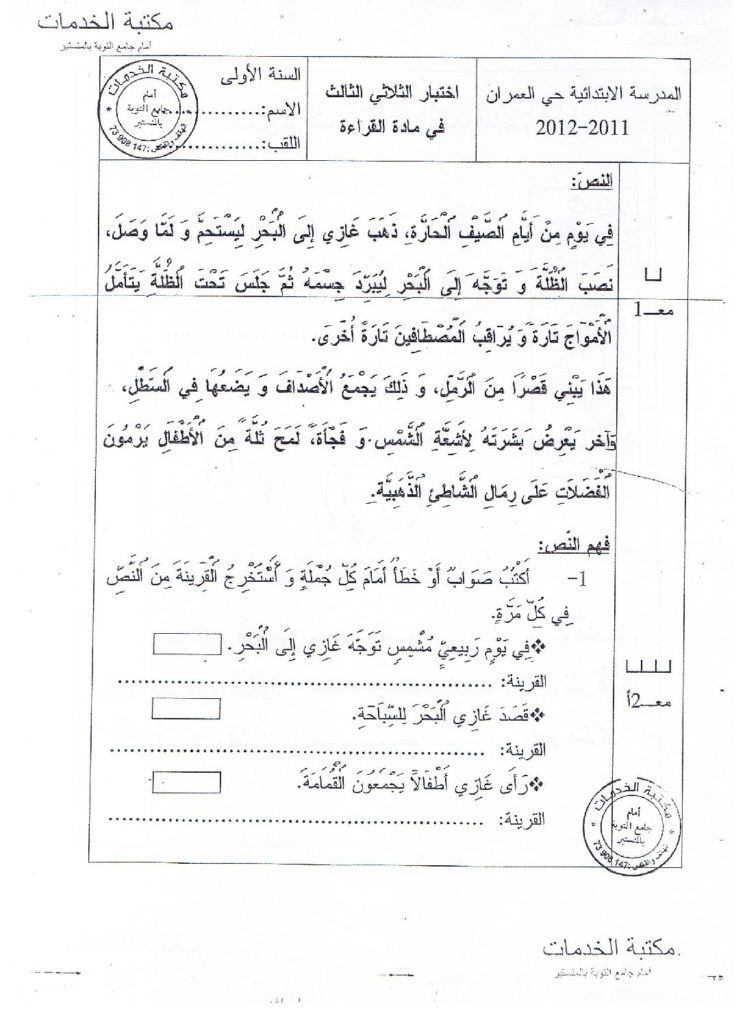 مكتبة الخدمات
أمام جامع التوبة بالمنستير
المدرسة الابتدائية حي العمران
2011-2012
اختبار الثلاثي الثالث
في مادة القراءة
السنة الأولى
الاسم:..................
اللقب:..................
مكتبة الخدمات
أمام
جامع التوبة
بالمنستير
73 908 147
النص:
فِي يَوْمٍ مِنْ أَيَّامِ الصَّيْفِ الْحَارَّةِ، ذَهَبَ غَازِي إِلَى الْبَحْرِ لِيَسْتَحِمَّ وَ لَمَّا وَصَلَ،
نَصَبَ الظُّلَّةَ وَ تَوَجَّهَ إِلَى الْبَحْرِ لِيُبَرِّدَ جِسْمَهُ ثُمَّ جَلَسَ تَحْتَ الظُّلَّةِ يَتَأَمَّلُ
الْأَمْوَاجَ تَارَةً وَ يُرَاقِبُ الْمُصْطَافِينَ تَارَةً أُخْرَى.
هَذَا يَبْنِي قَصْرًا مِنَ الرَّمْلِ، وَ ذَلِكَ يَجْمَعُ الْأَصْدَافَ وَ يَضَعُهَا فِي السَّطْلِ،
وَآخر يَعْرِضُ بَشَرَتَهُ لِأَشِعَّةِ الشَّمْسِ. وَ فَجْأَةً، لَمَحَ ثُلَّةً مِنَ الْأَطْفَالِ يَرْمُونَ
الْفَضَلَاتِ عَلَى رِمَالِ الشَّاطِئِ الذَّهَبِيَّةِ.
معـ1
فهم النّص:
1- أَكْتُبُ صَوَابٌ أَوْ خَطَأٌ أَمَامَ كِلِّ جُمْلَةٍ وَ أَسْتَخْرِجُ الْقَرِينَةَ مِنَ النَّصِّ
فِي كُلِّ مَرَّةٍ.
❖فِي يَوْمٍ رَبِيعِيٍّ مُشْمِسٍ تَوَجَّهَ غَازِي إِلَى الْبَحْرِ.
القرينة: ........................................................
❖قَصَدَ غَازِي الْبَحْرَ لِلسِّبَاحَةِ.
القرينة: ........................................................
❖رَأَى غَازِي أَطْفَالًا يَجْمَعُونَ الْقُمَامَةَ.
القرينة: ........................................................
معـ2أ
مكتبة الخدمات
أمام
جامع التوبة
بالمنستير
73 908 147
مكتبة الخدمات
أمام جامع التوبة بالمنستير